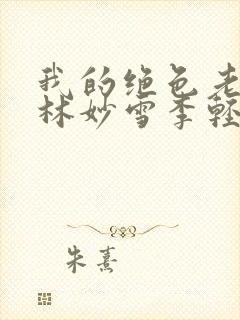 我的绝色老
林妙雪季轻
朱熹